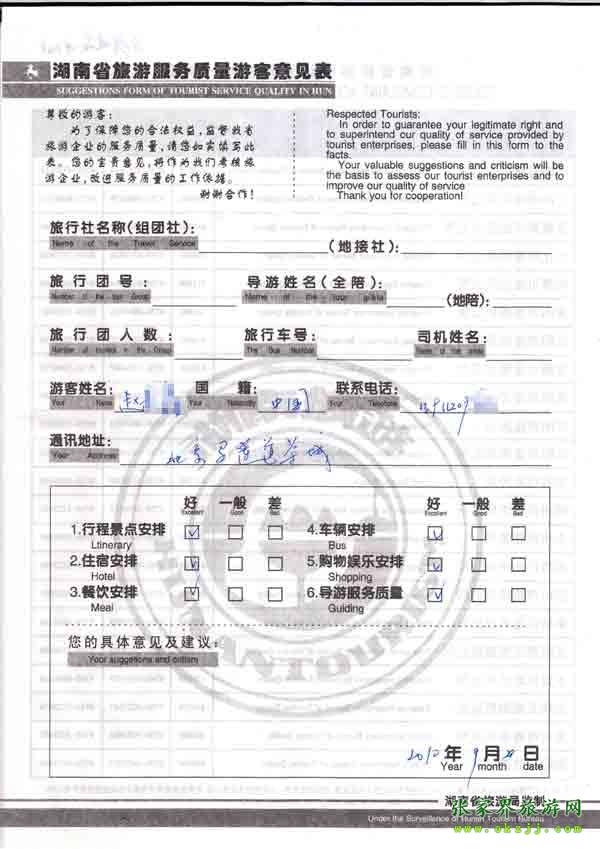 湖南省旅游服务质量游客意见表
SUGGESTIONS FORM OF TOURIST SERVICE QUALITY IN HUN
尊敬的游客:
为了保障您的合法权益,监督我省
旅游企业的服务质量,请您如实填写此
表。您的宝贵意见,将作为我们考核旅
游企业,改进服务质量的工作依据。
谢谢合作!
Respected Tourists:
In order to guarantee your legitimate right and
to superintend our quality of service provided by
tourist enterprises, please fill in this form to the
facts.
Your valuable suggestions and criticism will be
the basis to assess our tourist enterprises and to
improve our quality of service
Thank you for cooperation!
旅行社名称(组团社): (地接社):
Name of the Travel Service
旅行团号: 导游姓名(全陪) (地陪):
Number of the tour Group Name of the tour guide
旅行团人数: 旅行车号: 司机姓名:
Number of tourists in the Group The Bus Number Name of the driver
游客姓名: 赵 国籍: 中国 联系电话:
Your Name Your Nationality Your Telephone
通讯地址: 北京
Your Address
好 一般 差 好 一般 差
Excellent Good Bad Excellent Good Bad
1.行程景点安排 4.车辆安排
Ltinerary Bus
2.住宿安排 5.购物娱乐安排
Hotel Shopping
3.餐饮安排 6.导游服务质量
Meal Guiding
您的具体意见及建议:
Your suggetions and critism
2010年 9月 日
Year month date
湖南省旅游局监制
Under the Surveillence of Hunan Tourism Bureau
张家界旅游网
www.okzjj.com